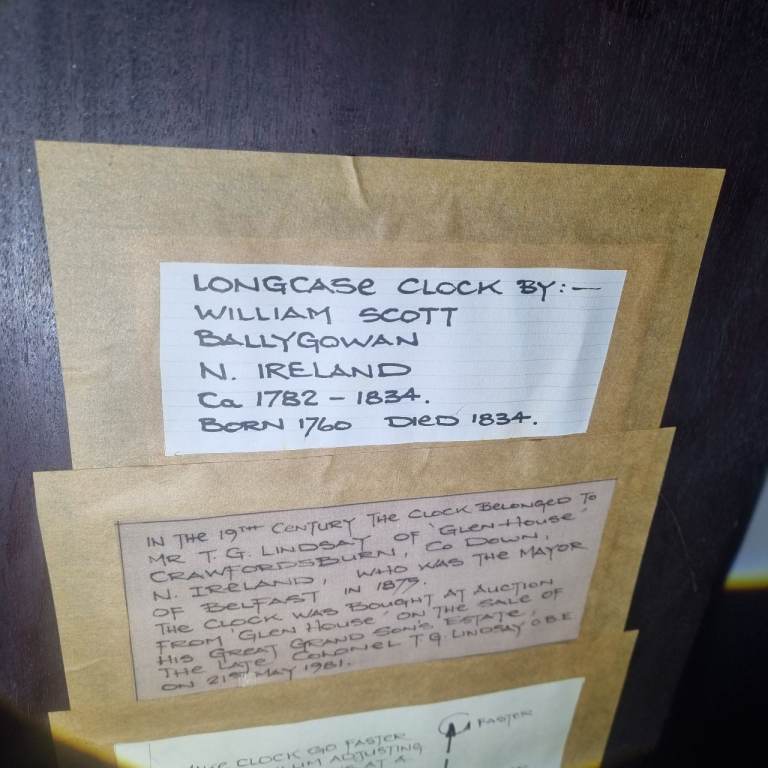 LONGCASE CLOCK BY:—
WILLIAM SCOTT
BALLYGOWAN
N. IRELAND
Ca 1782 – 1834.
BORN 1760 DIED 1834.
IN THE 19TH CENTURY THE CLOCK BELONGED TO
MR T. G. LINDSAY OF 'GLEN-HOUSE'
CRAWFORDSBURN, Co DOWN,
N. IRELAND, WHO WAS THE MAYOR
OF BELFAST IN 1875.
THE CLOCK WAS BOUGHT AT AUCTION
FROM 'GLEN HOUSE' ON THE SALE OF
HIS GREAT GRAND SON'S ESTATE,
THE LATE COLONEL T. G. LINDSAY O.B.E.
ON 21ST MAY 1981.
CLOCK GO FASTER
ADJUSTING
AT A
FASTER